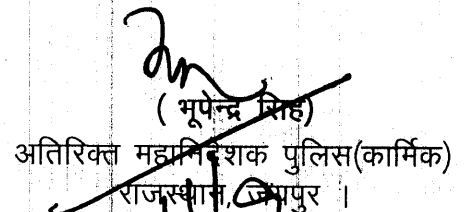 ( भूपेन्द्र सिंह)
अतिरिक्त महानिदेशक पुलिस(कार्मिक)
राजस्थान, जयपुर ।